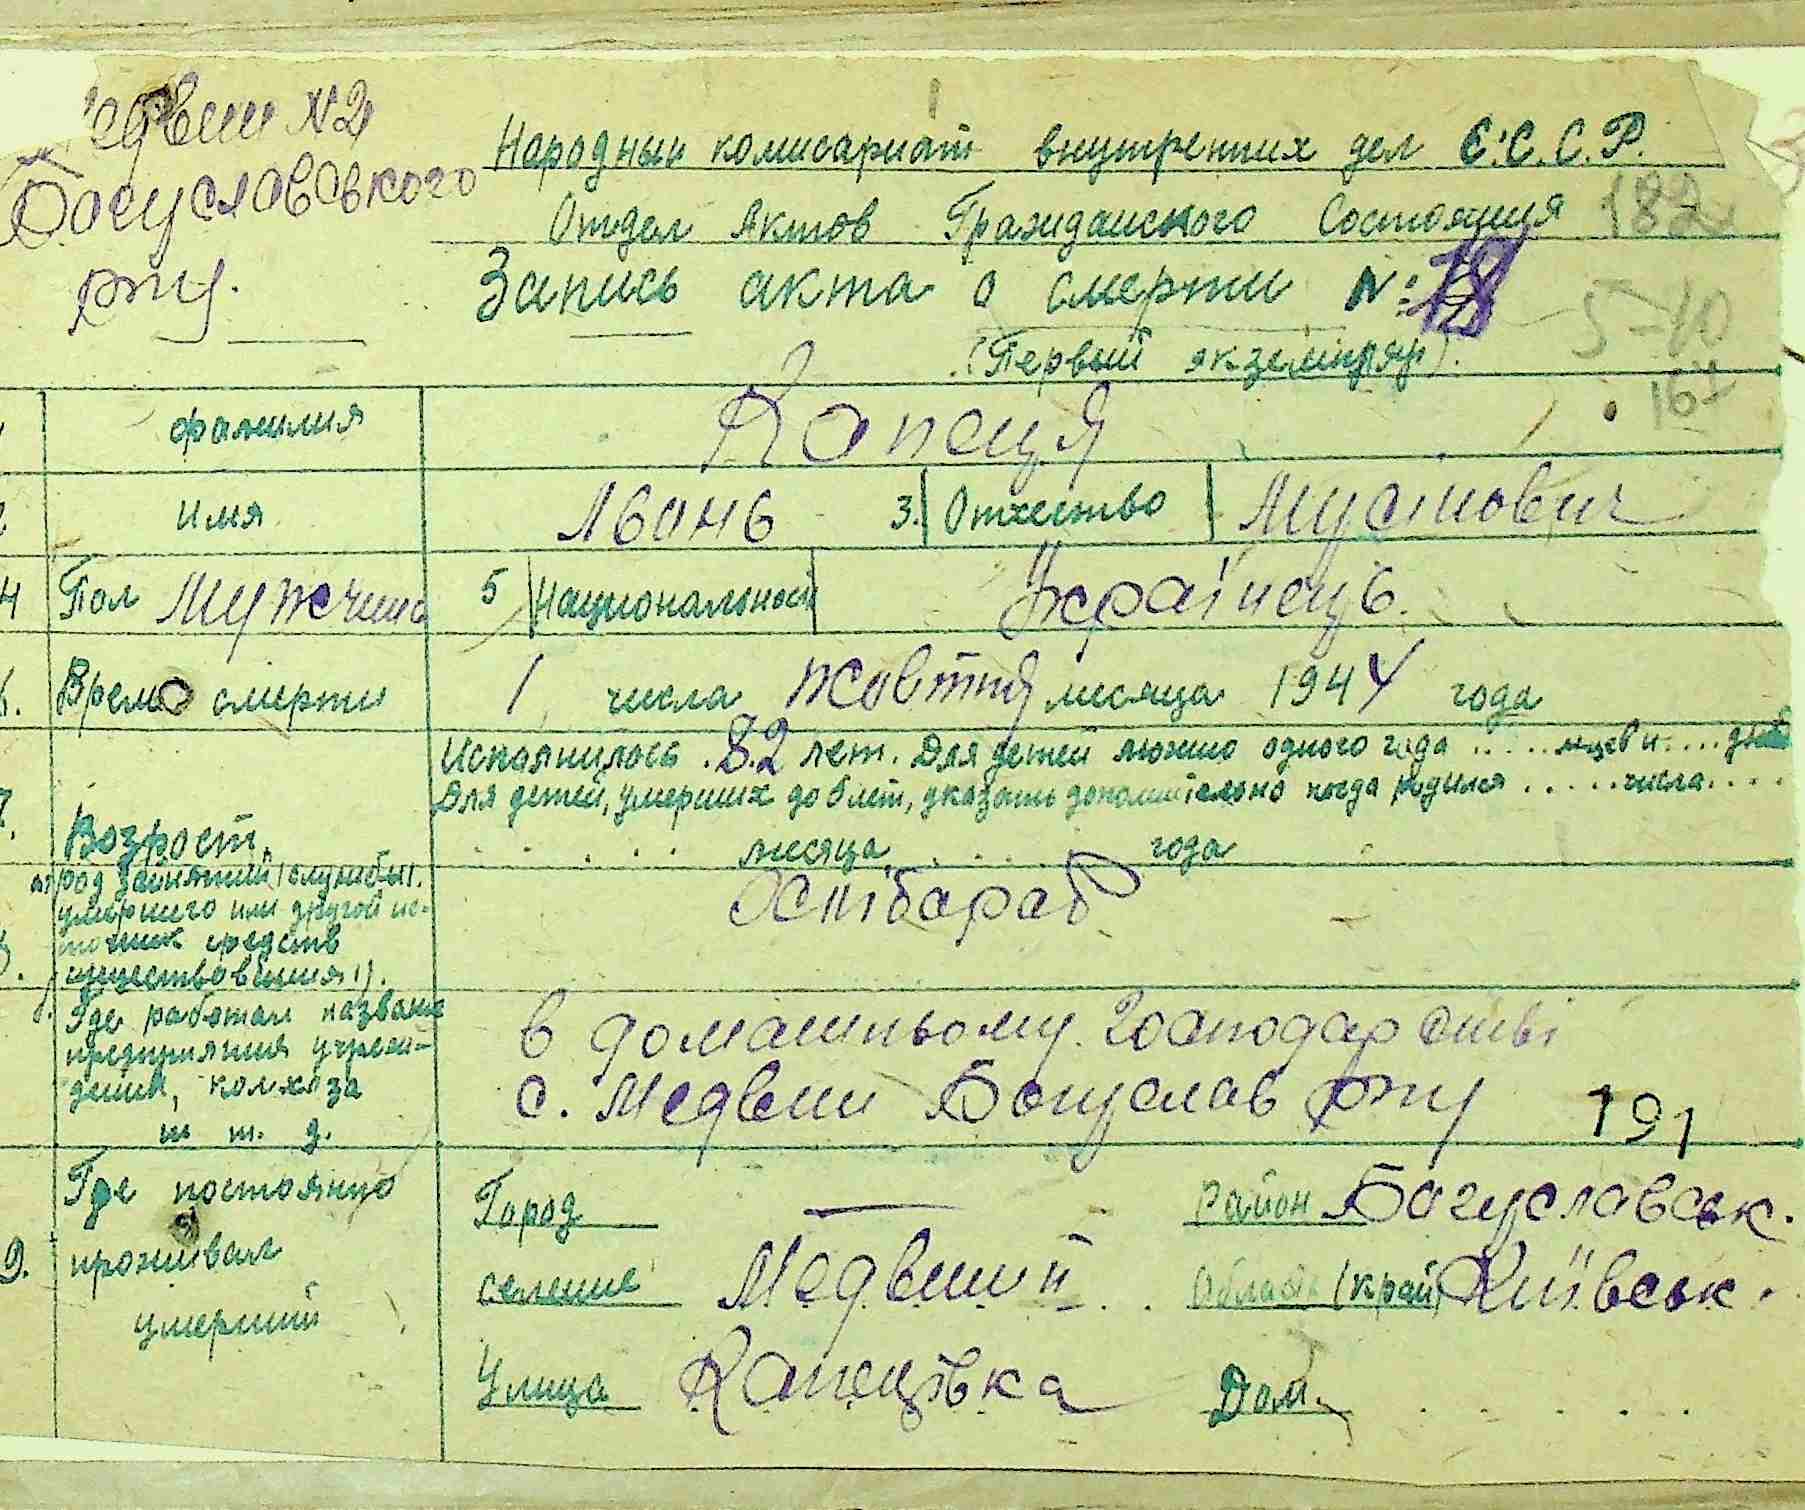 Медвин N2
Богуславського
рту.
Народный комисариат внутренних дел С.С.С.Р.
Отдел Актов Гражданского Состояния 182
Запись акта о смерти №: 18
5-10
(Первый экземпляр).
167
фамилия Копиця
2 имя Івань 3. Отчество Мусіиович
4 Пол Мужчина 5 Национальност Українець.
6. Время смерти 1 числа жовтня месяца 1944 года
7. Возраст Исполнилось 82 лет. Для детей можно одного года ..... м-цев и .... дней
Для детей, умерших до 6 лет, указать дополнительно когда родился ..... числа ....
..... месяца ..... года
род занятий (службы).
умершего или другой ис-
точник средств
существования).
Оснібараб
б. Где работал название
предприятия учреж-
дения, колхоза
и т. д.
в домашньому господарстві
с. Медвин Богуслав рту 191
9. Где постоянно
проживал
умерший
Город — Район Богуславськ.
селение Медвин ІІ Область (край) Київськ.
Улица Капецівка Дом.